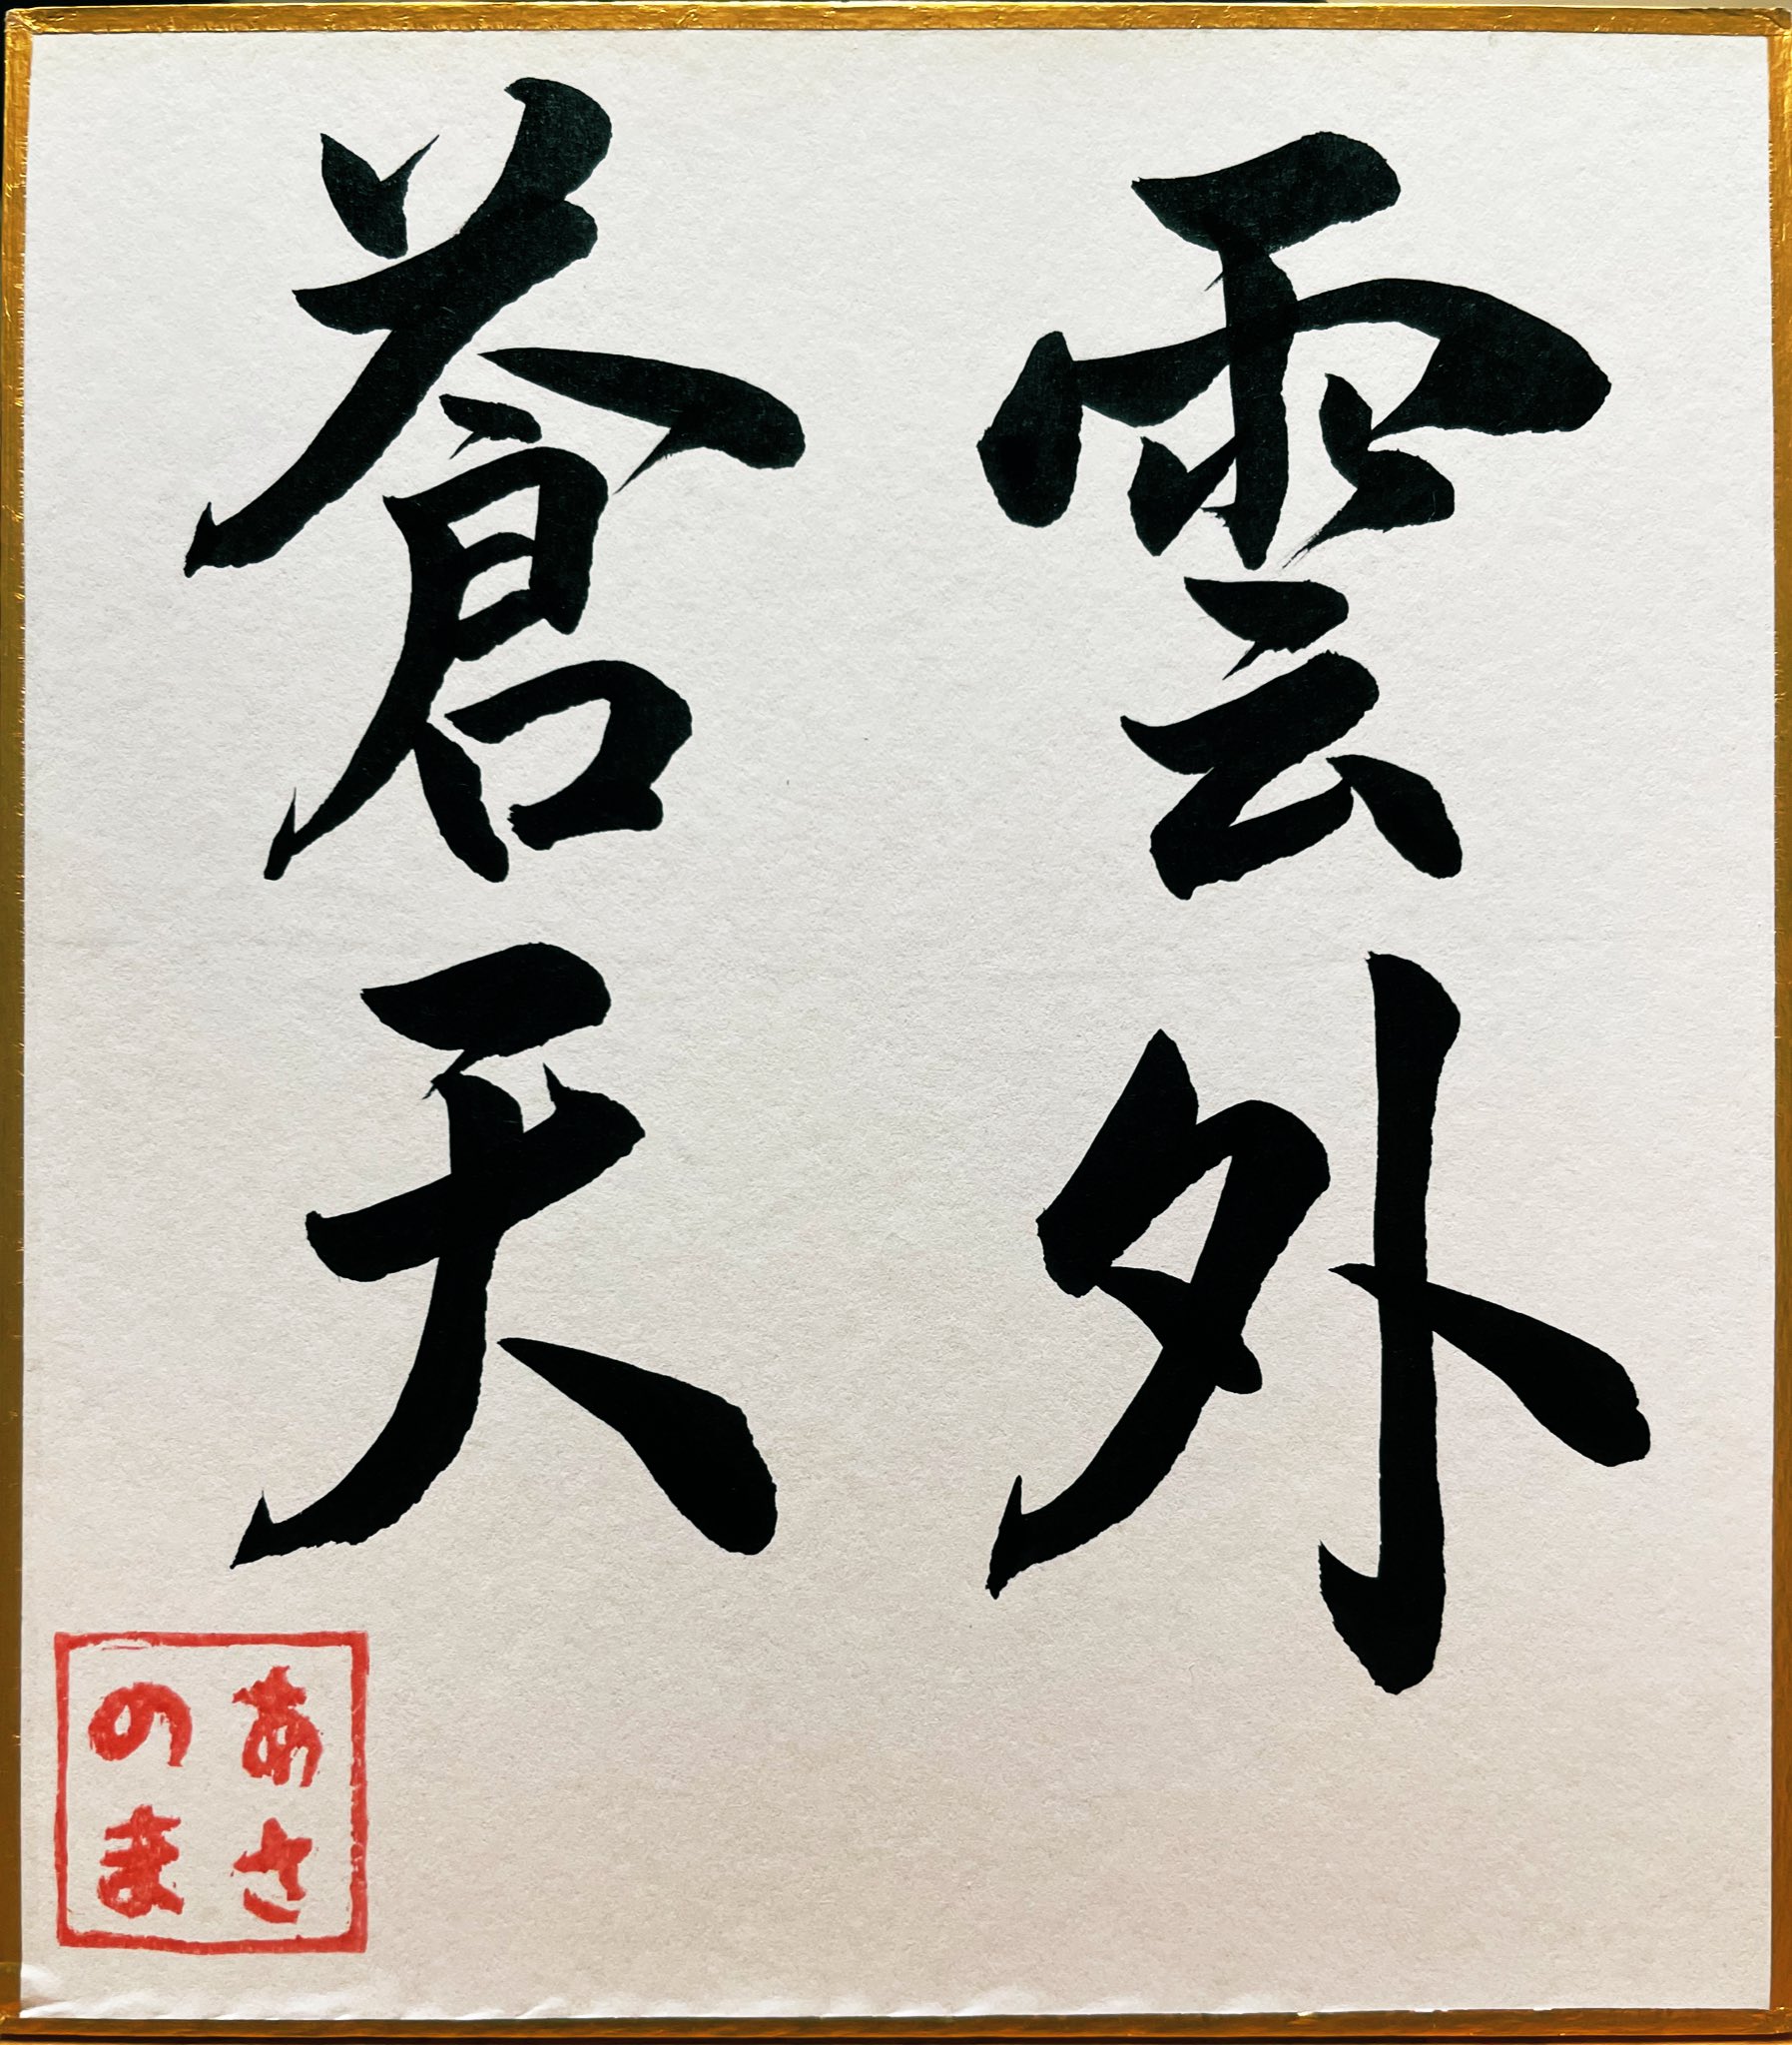 雲外
蒼天
あさ
のま